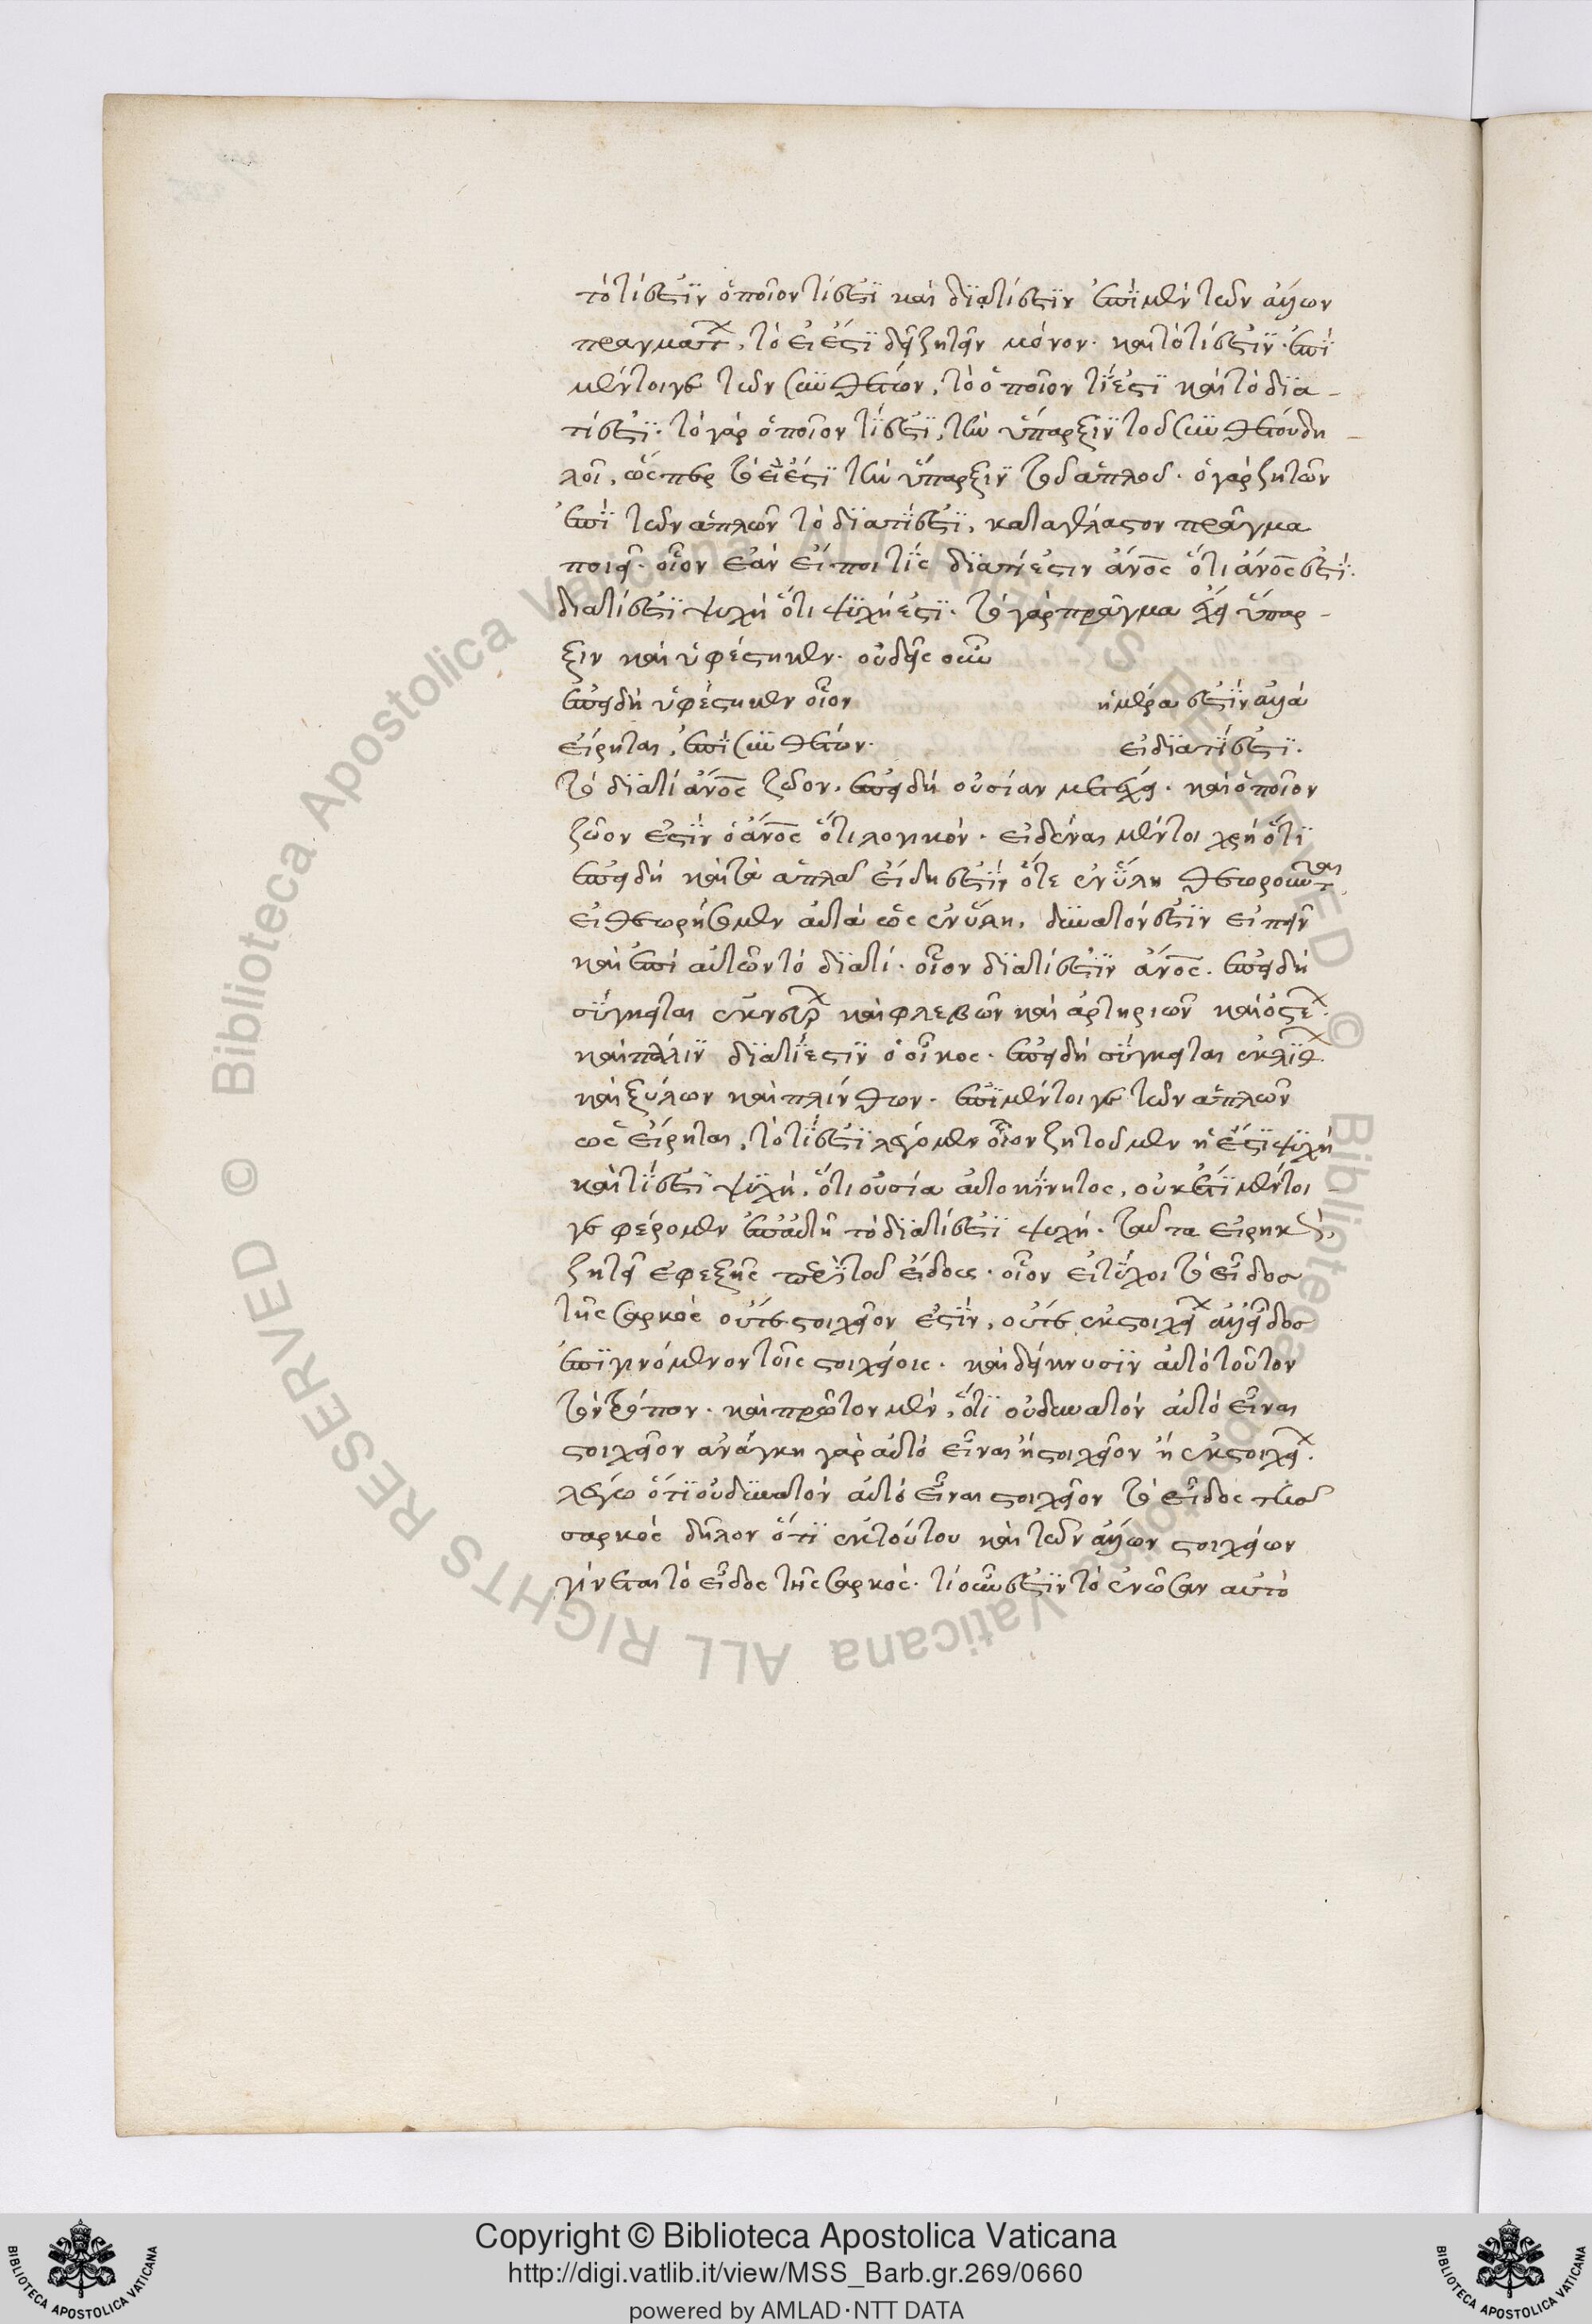 τὸ τί ἐστϊν ὁποῖον τί ἐστϊ καὶ διατί ἐστϊν ἐπὶ μὲν τῶν ἄλλων
πραγματ, τὸ εἰ ἔστϊ δεῖ ζητεῖν μόνον. καὶ τὸ τί ἐστϊν. ἐπὶ
μέντοιγε τῶν συνθέτων, τὸ ὁποῖον τί ἐστϊ καὶ τὸ δϊα-
τί ἐστϊ. τὸ γὰρ ὁποῖον τί ἐστϊ, τὴν ὕπαρξϊν τοῦ συνθέτου δη-
λοῖ, ὥσπερ τὸ εἰ ἔστϊ τὴν ὕπαρξιν τοῦ ἁπλοῦ. ὁ γὰρ ζητῶν
ἐπὶ τῶν ἁπλῶν τὸ διατί ἐστϊ, καταγέλαστον πρᾶγμα
ποιεῖ. οἷον ἐὰν εἴποι τὶς διατί ἐστιν ἄνος ὅτι ἄνος ἐστϊ.
διατί ἐστϊ ψυχὴ ὅτι ψυχή ἐστϊ. τὸ γὰρ πρᾶγμα ἔχει ὕπαρ-
ξιν καὶ ὑφέστηκεν. οὐδεὶς οὖν
ἐπειδὴ ὑφέστηκεν οἷον ἡμέρα ἐστὶν ἀλλὰ
εἴρηται, ἐπὶ συνθέτων. εἰ διατί ἐστϊ.
τὸ διατί ἄνος ζῶον. ἐπειδὴ οὐσίαν μετέχει. καὶ ὁποῖον
ζῶον ἐστὶν ὁ ἄνος ὅτι λογικόν. εἰδέναι μέντοι χρὴ ὅτϊ
ἐπειδὴ καὶ τὰ ἁπλᾶ εἴδη ἐστὶν ὅτε ἐν ὕλῃ θεωροῦνται
εἰ θεωρήσωμεν αὐτὰ ὡς ἐν ὕλῃ, δυνατόν ἐστϊν εἰπεῖν
καὶ ἐπὶ αὐτῶν τὸ διατί. οἷον διατί ἐστϊν ἄνος. ἐπειδὴ
σύγκειται ἐκ νευρ καὶ φλεβῶν καὶ ἀρτηριῶν καὶ ὀστε.
καὶ πάλιν διατί ἐστϊν ὁ οἶκος. ἐπειδὴ σύγκειται ἐκ λιθ
καὶ ξύλων καὶ πλίνθων. ἐπὶ μέντοιγε τῶν ἁπλῶν
ὡς εἴρηται, τὸ τί ἐστϊ λέγομεν οἷον ζητοῦμεν ἢ ἔστϊ ψυχὴ
καὶ τί ἐστϊ ψυχὴ, ὅτι οὐσία αὐτοκίνητος, οὐκέτι μέντοι-
γε φέρομεν ἐπ' αὐτῇ τὸ διατί ἐστϊ ψυχή. ταῦτα εἰρηκὼς,
ζητεῖ ἐφεξῆς περὶ τοῦ εἴδους. οἷον εἰ τύχοι τὸ εἶδος
τῆς σαρκὸς οὔτε στοιχεῖον ἐστὶν, οὔτε ἐκ στοιχεί ἀλλ' εἶδος
ἐπιγινόμενον τοῖς στοιχείοις. καὶ δείκνυσϊν αὐτὸ τοῦτον
τὸν τρόπον. καὶ πρῶτον μὲν, ὅτϊ οὐ δυνατὸν αὐτὸ εἶναι
στοιχεῖον ἀνάγκη γὰρ αὐτὸ εἶναι ἢ στοιχεῖον ἢ ἐκ στοιχεί.
λέγω ὅτϊ οὐ δυνατὸν αὐτὸ εἶναι στοιχεῖον τὸ εἶδος τῆς
σαρκὸς δῆλον ὅτϊ ἐκ τούτου καὶ τῶν ἄλλων στοιχείων
γίνεται τὸ εἶδος τῆς σαρκός. τί οὖν ἐστϊν τὸ ἑνῶσαν αὐτὸ
Copyright © Biblioteca Apostolica Vaticana
http://digi.vatlib.it/view/MSS_Barb.gr.269/0660
powered by AMLAD·NTT DATA